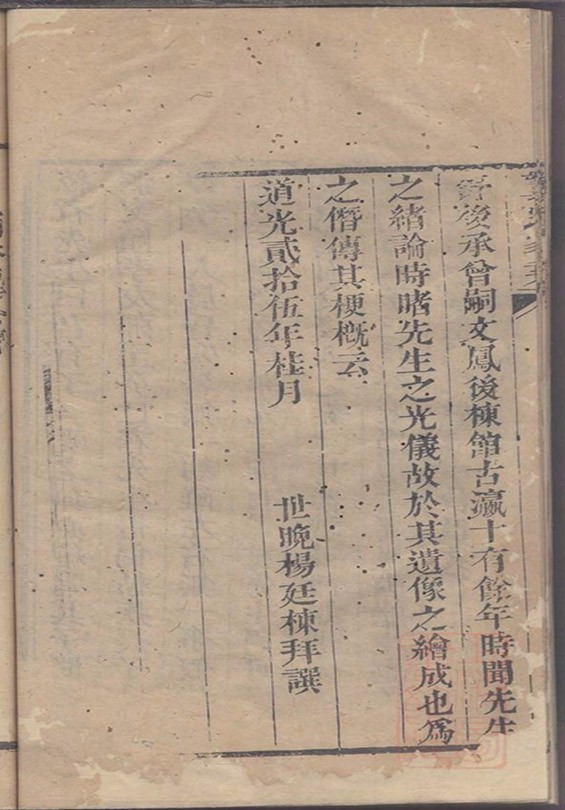 後承曾嗣文鳳後棟館古瀛十有餘年時聞先生
之緒論時睹先生之光儀故於其遺像之繪成也為
之僭傳其梗概云
道光貳拾伍年桂月
世晚楊廷棟拜譔